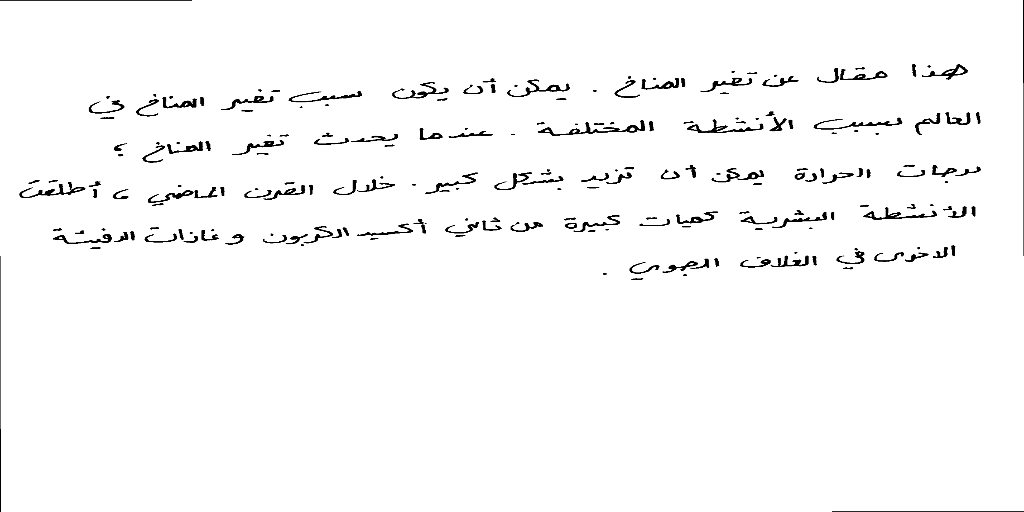 هذا مقال عن تغير المناخ . يمكن أن يكون سبب تغير المناخ في
العالم بسبب الأنشطة المختلفة . عندما يحدث تغير المناخ ؛
درجات الحرارة يمكن أن تزيد بشكل كبير . خلال القرن الماضي ، أطلقت
الأنشطة البشرية كميات كبيرة من ثاني أكسيد الكربون و غازات الدفيئة
الاخرى في الغلاف الجوي .